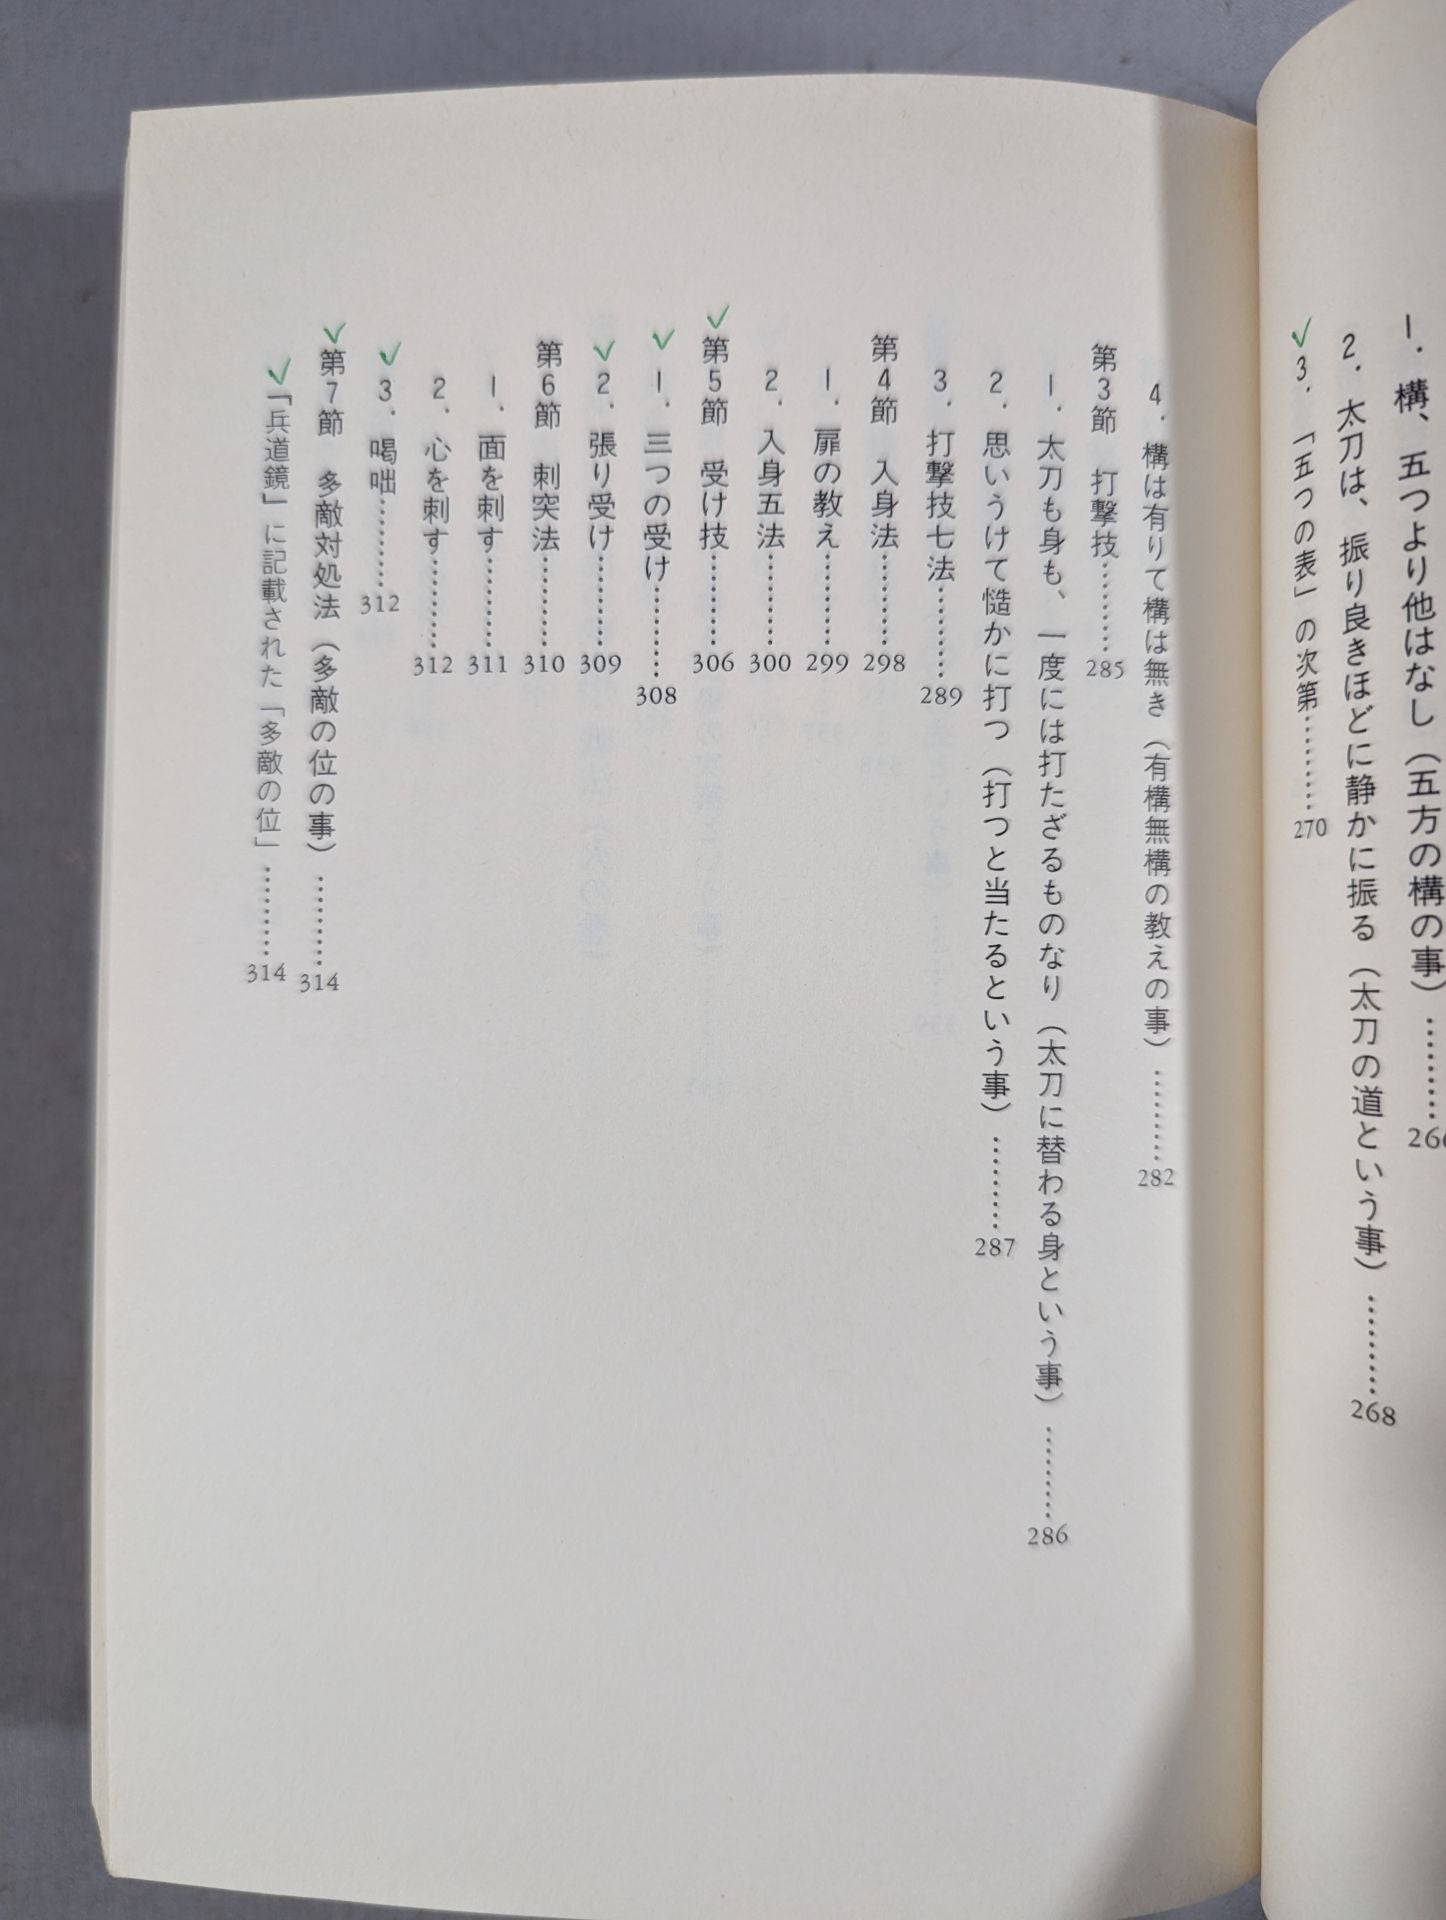 1. 構、五つより他はなし（五方の構の事）………266
2. 太刀は、振り良きほどに静かに振る（太刀の道という事）………268
✓3. 「五つの表」の次第………270
4. 構は有りて構は無き（有構無構の教えの事）………282
第3節 打撃技………285
1. 太刀も身も、一度には打たざるものなり（太刀に替わる身という事）………286
2. 思いうけて慥かに打つ（打つと当たるという事）………287
3. 打撃技七法………289
第4節 入身法………298
1. 扉の教え………299
2. 入身五法………300
✓第5節 受け技………306
✓1. 三つの受け………308
✓2. 張り受け………309
第6節 刺突法………310
1. 面を刺す………311
2. 心を刺す………312
✓3. 喝咄………312
✓第7節 多敵対処法（多敵の位の事）………314
✓「兵道鏡」に記載された「多敵の位」………314